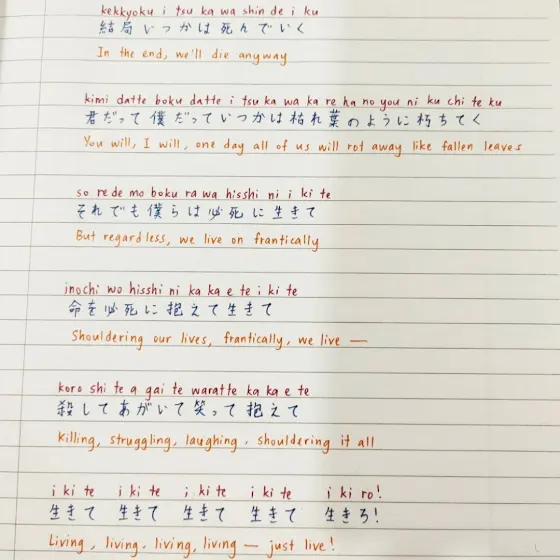 kekkyoku i tsu ka wa shin de i ku
結局いつかは死んでいく
In the end, we'll die anyway
kimi datte boku datte i tsu ka wa ka re ha no you ni ku chi te ku
君だって僕だっていつかは枯れ葉のように朽ちてく
You will, I will, one day all of us will rot away like fallen leaves
so re de mo boku ra wa hisshi ni i ki te
それでも僕らは必死に生きて
But regardless, we live on frantically
inochi wo hisshi ni ka ka e te i ki te
命を必死に抱えて生きて
Shouldering our lives, frantically, we live —
koro shi te a gai te waratte ka ka e te
殺してあがいて笑って抱えて
Killing, struggling, laughing, shouldering it all
i ki te i ki te i ki te i ki te i ki ro!
生きて 生きて 生きて 生きて 生きろ!
Living, living, living, living — just live!